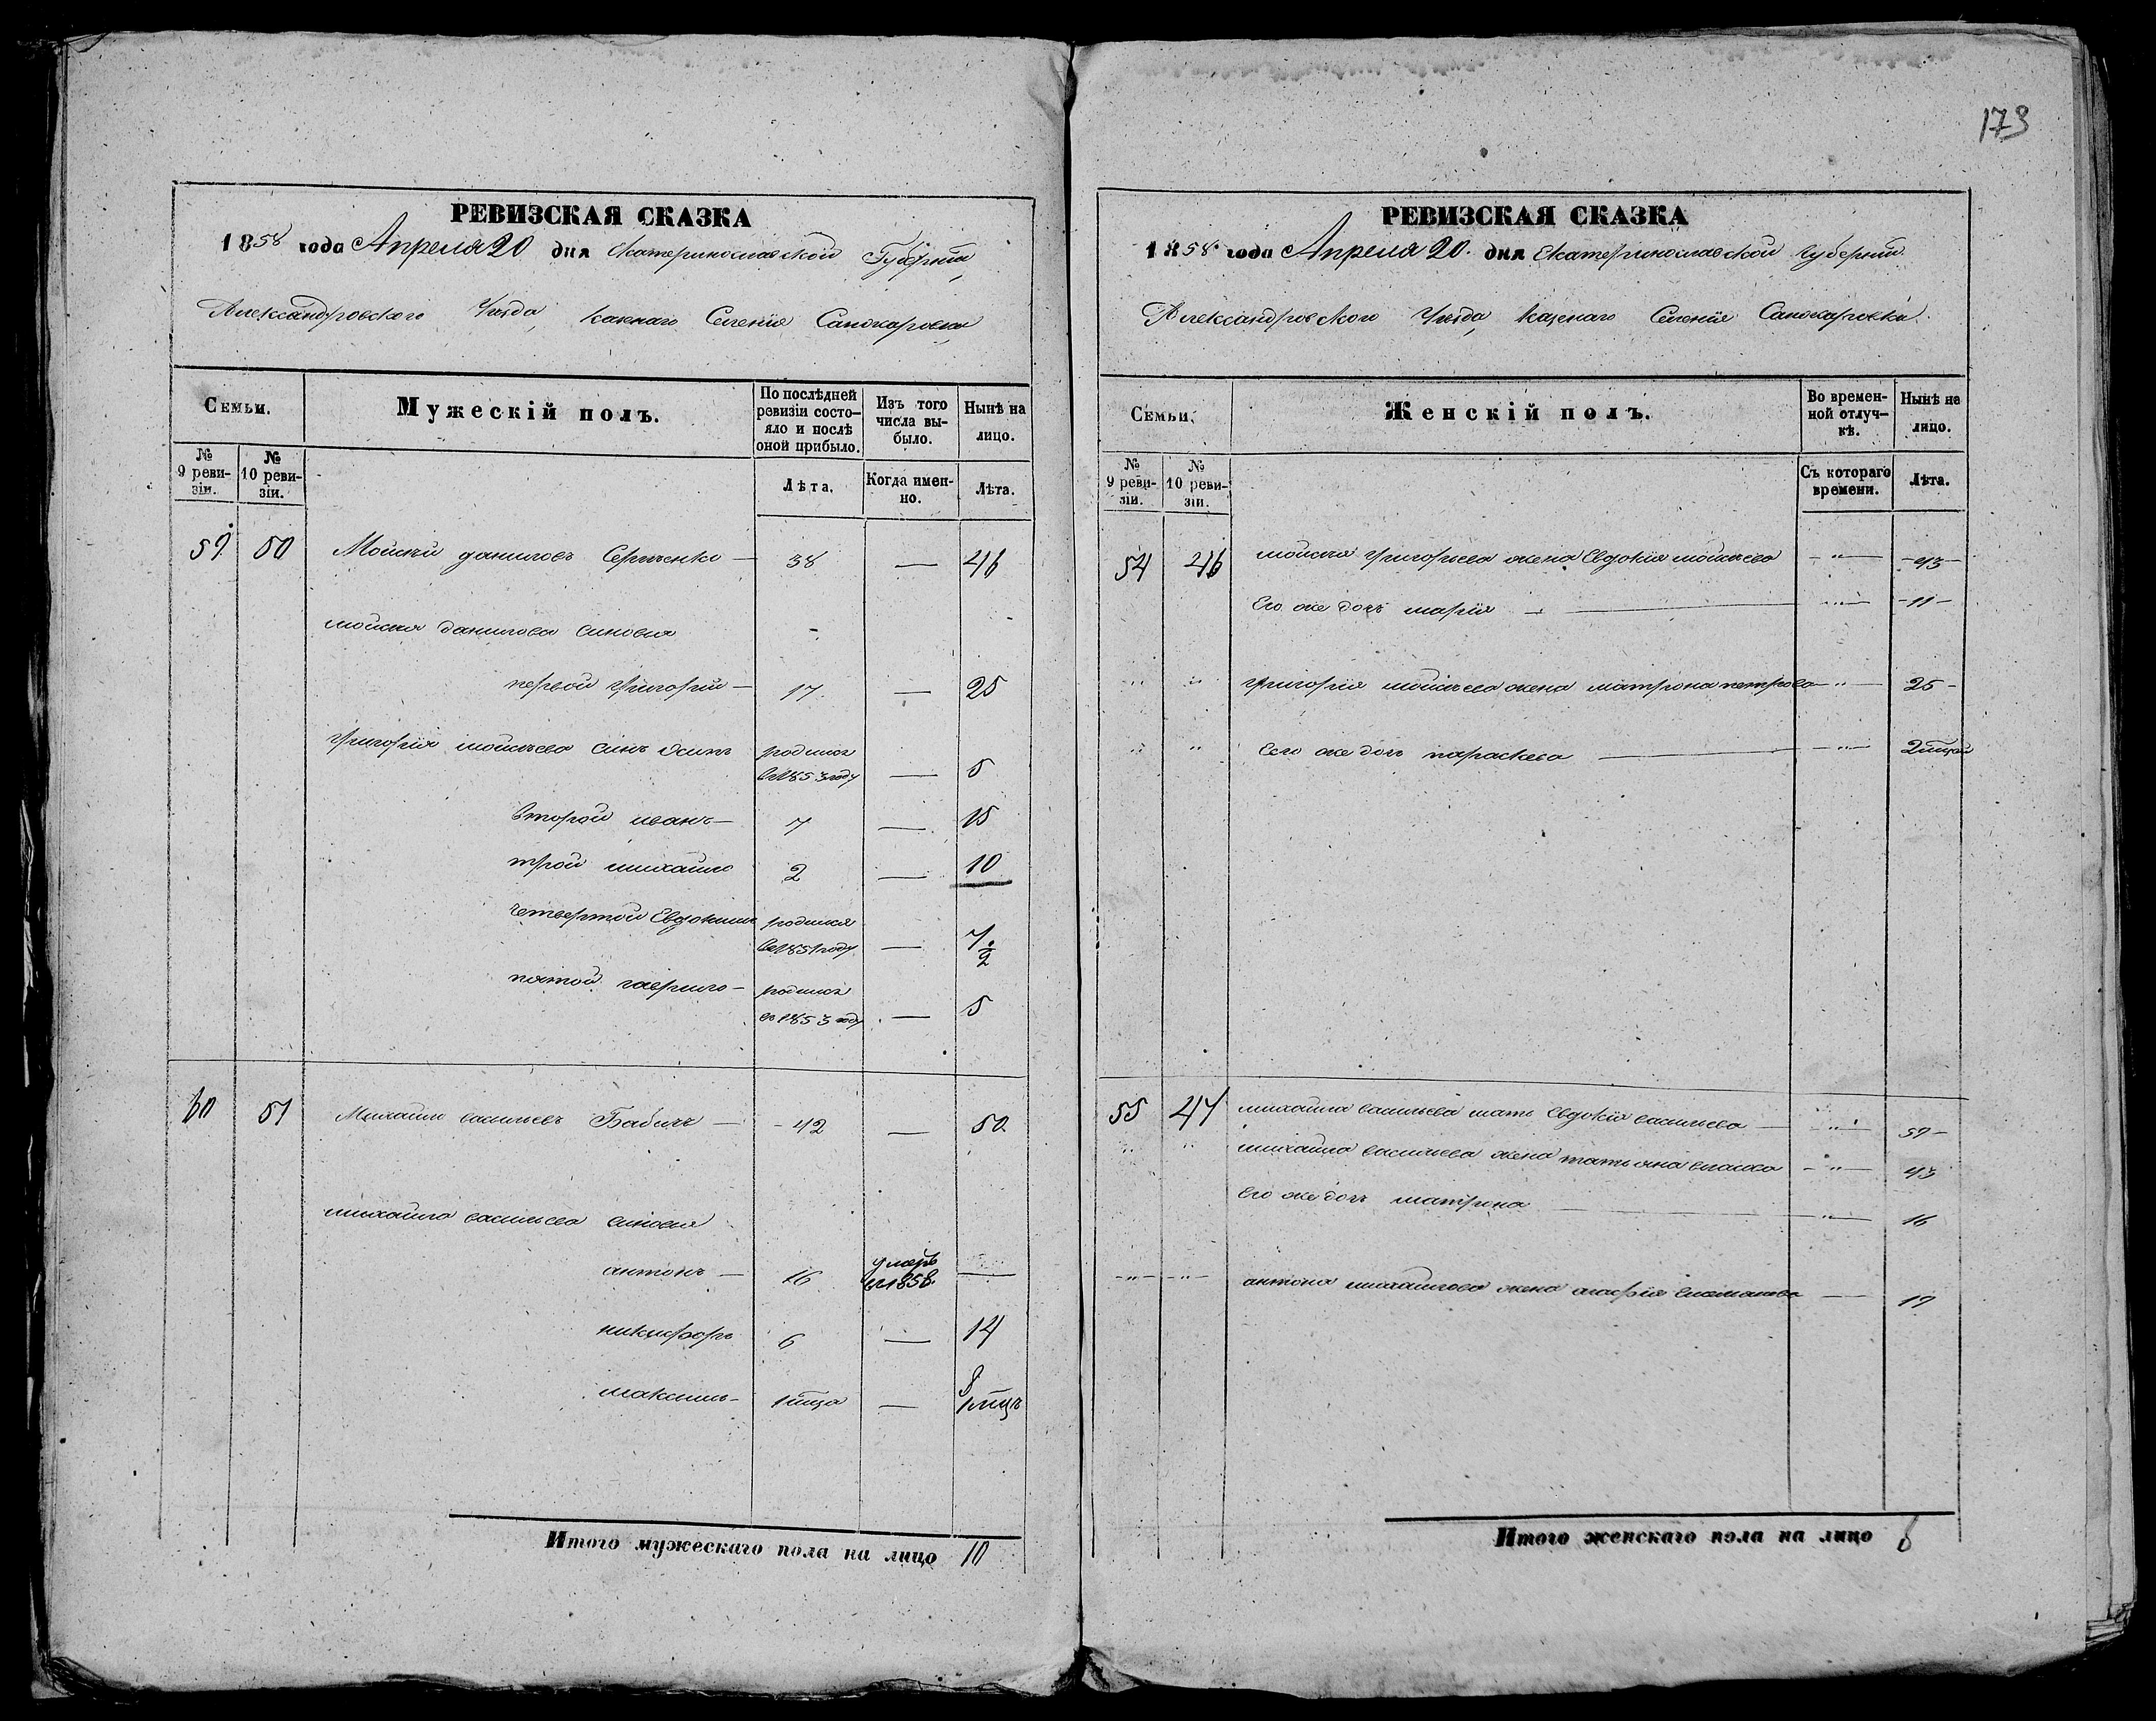 РЕВИЗСКАЯ СКАЗКА
1858 года Апреля 20 дня Екатеринославской Губернии,
Александровского Уезда, казенаго Селения
Семьи.
Мужескій полъ.
По послѣдней ревизіи состояло и послѣ оной прибыло.
Изъ того числа выбыло.
Нынѣ на лицо.
№ 9 ревизіи.
№ 10 ревизіи.
Лѣта.
Когда именно.
Лѣта.
59 50 Мойсѣй даниловъ — 38 — 46
мойсея данилова синовья
первой григорій — 17 — 25
григорія мойсѣева синъ родился
в 1853 году — 5
второй иванъ — 7 — 15
трой михайло 2 — 10
четвертой Евдокимъ родился
в 1851 году — 7
2
пятой гаврило — родился
в 1853 году — 5
60 51 Михайло васильевъ Бабичъ — 42 — 50
михайла васильева синовья
антонъ — 16 умеръ
в 1858 —
никифоръ 6 — 14
максимъ — 1 мца — 8
1 мцъ
Итого мужескаго пола на лицо 10
173
РЕВИЗСКАЯ СКАЗКА
1858 года Апреля 20. дня Екатеринославской губернии.
Александровского Уезда, казенаго Селения
Семьи.
Женскій полъ.
Во временной отлучкѣ.
Нынѣ на лицо.
№ 9 ревизіи.
№ 10 ревизіи.
Съ котораго времени.
Лѣта.
54 46 мойсея григорьева жена Евдокия мойсѣева — " — 43 —
Его же дочь мария — " — 11 —
" " григория мойсѣева жена матрона петрова — " — 25 —
" " Его же дочь параскева — " —
55 47 михайла васильева мать Евдокия васильева — " —
" " михайла васильева жена татьяна — " — 43
Его же дочь матрона — " — 16
— " — — " — антона михайлова жена —
Итого женскаго пола на лицо 8